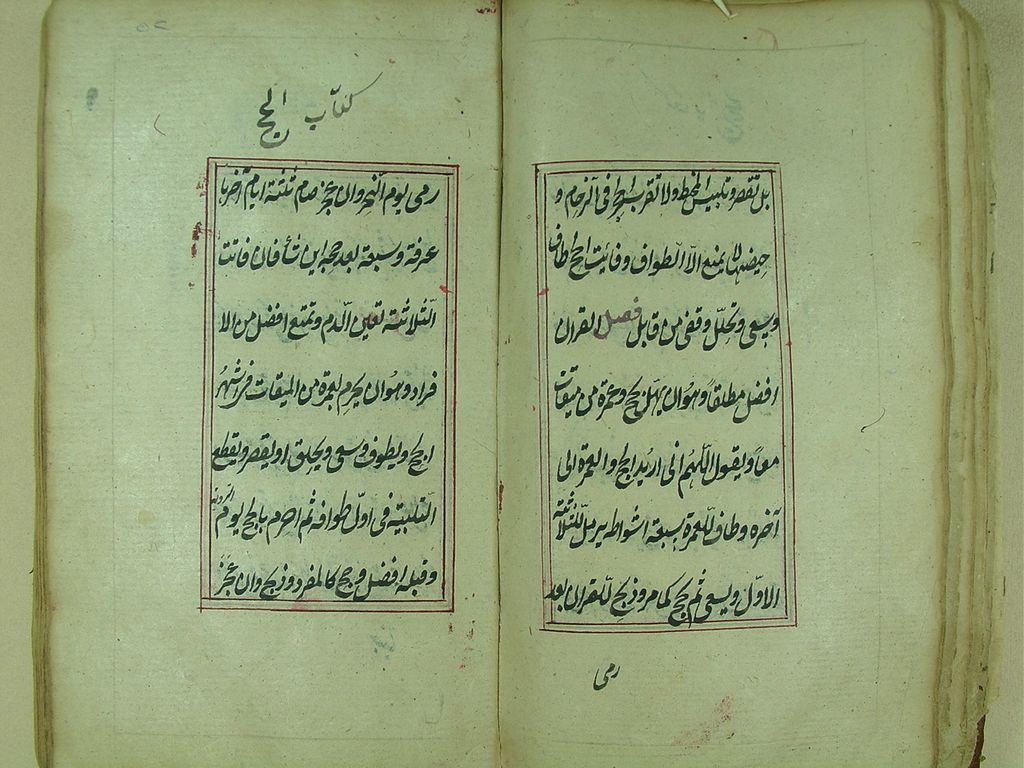 بل تقصر وتلبيس المخيط ولا تقرب الحجر في الزحام و
حيضها لا يمنع الا الطواف وفائت الحج طاف
وسعى وتحلل وقضى من قابل فصل القران
افضل مطلقاً وهو ان يهل بحج وعمرة من ميقات
معاً ويقول اللهم اني اريد الحج والعمرة الى
آخره وطاف للعمرة سبعة اشواط يرمل للثلاثة
الاول ويسعى ثم يحج كما مر وذبح للقران بعد
رمى
كتاب الحج
رمى يوم النحر وان عجز صام ثلثة ايام آخرها
عرفة وسبعة بعد حجه اين شأ فان فاتت
الثلاثة تعين الدم وتمتع افضل من الا
فراد وهو ان يحرم بعمرة من الميقات في اشهر
الحج ويطوف ويسعى ويحلق او يقصر ويقطع
التلبية في اول طوافه ثم احرم بالحج يوم التروية
وقبله افضل وحج كالمفرد وذبح وان عجز